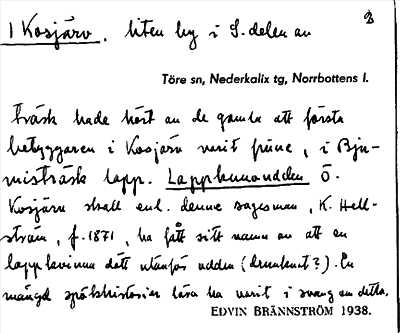 1 Kosjärv. liten by i S. delen av
Töre sn, Nederkalix tg, Norrbottens l.
träsk hade hört av de gamla att första
bebyggaren i Kosjärv varit finne, i Bju-
misträsk lapp. Lappkunoudden Ö.
Kosjärv skall enl. denne sagesman, K. Hell-
ström, f. 1871, ha fått sitt namn av att en
lappkvinna dött utanför udden (drunknat?). En
mängd spökhistorier lära ha varit i svang om detta.
EDVIN BRÄNNSTRÖM 1938.